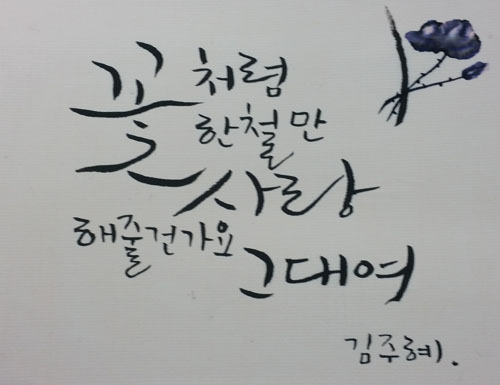 꽃처럼
한철만
사랑
해줄건가요
그대여
김주혜.